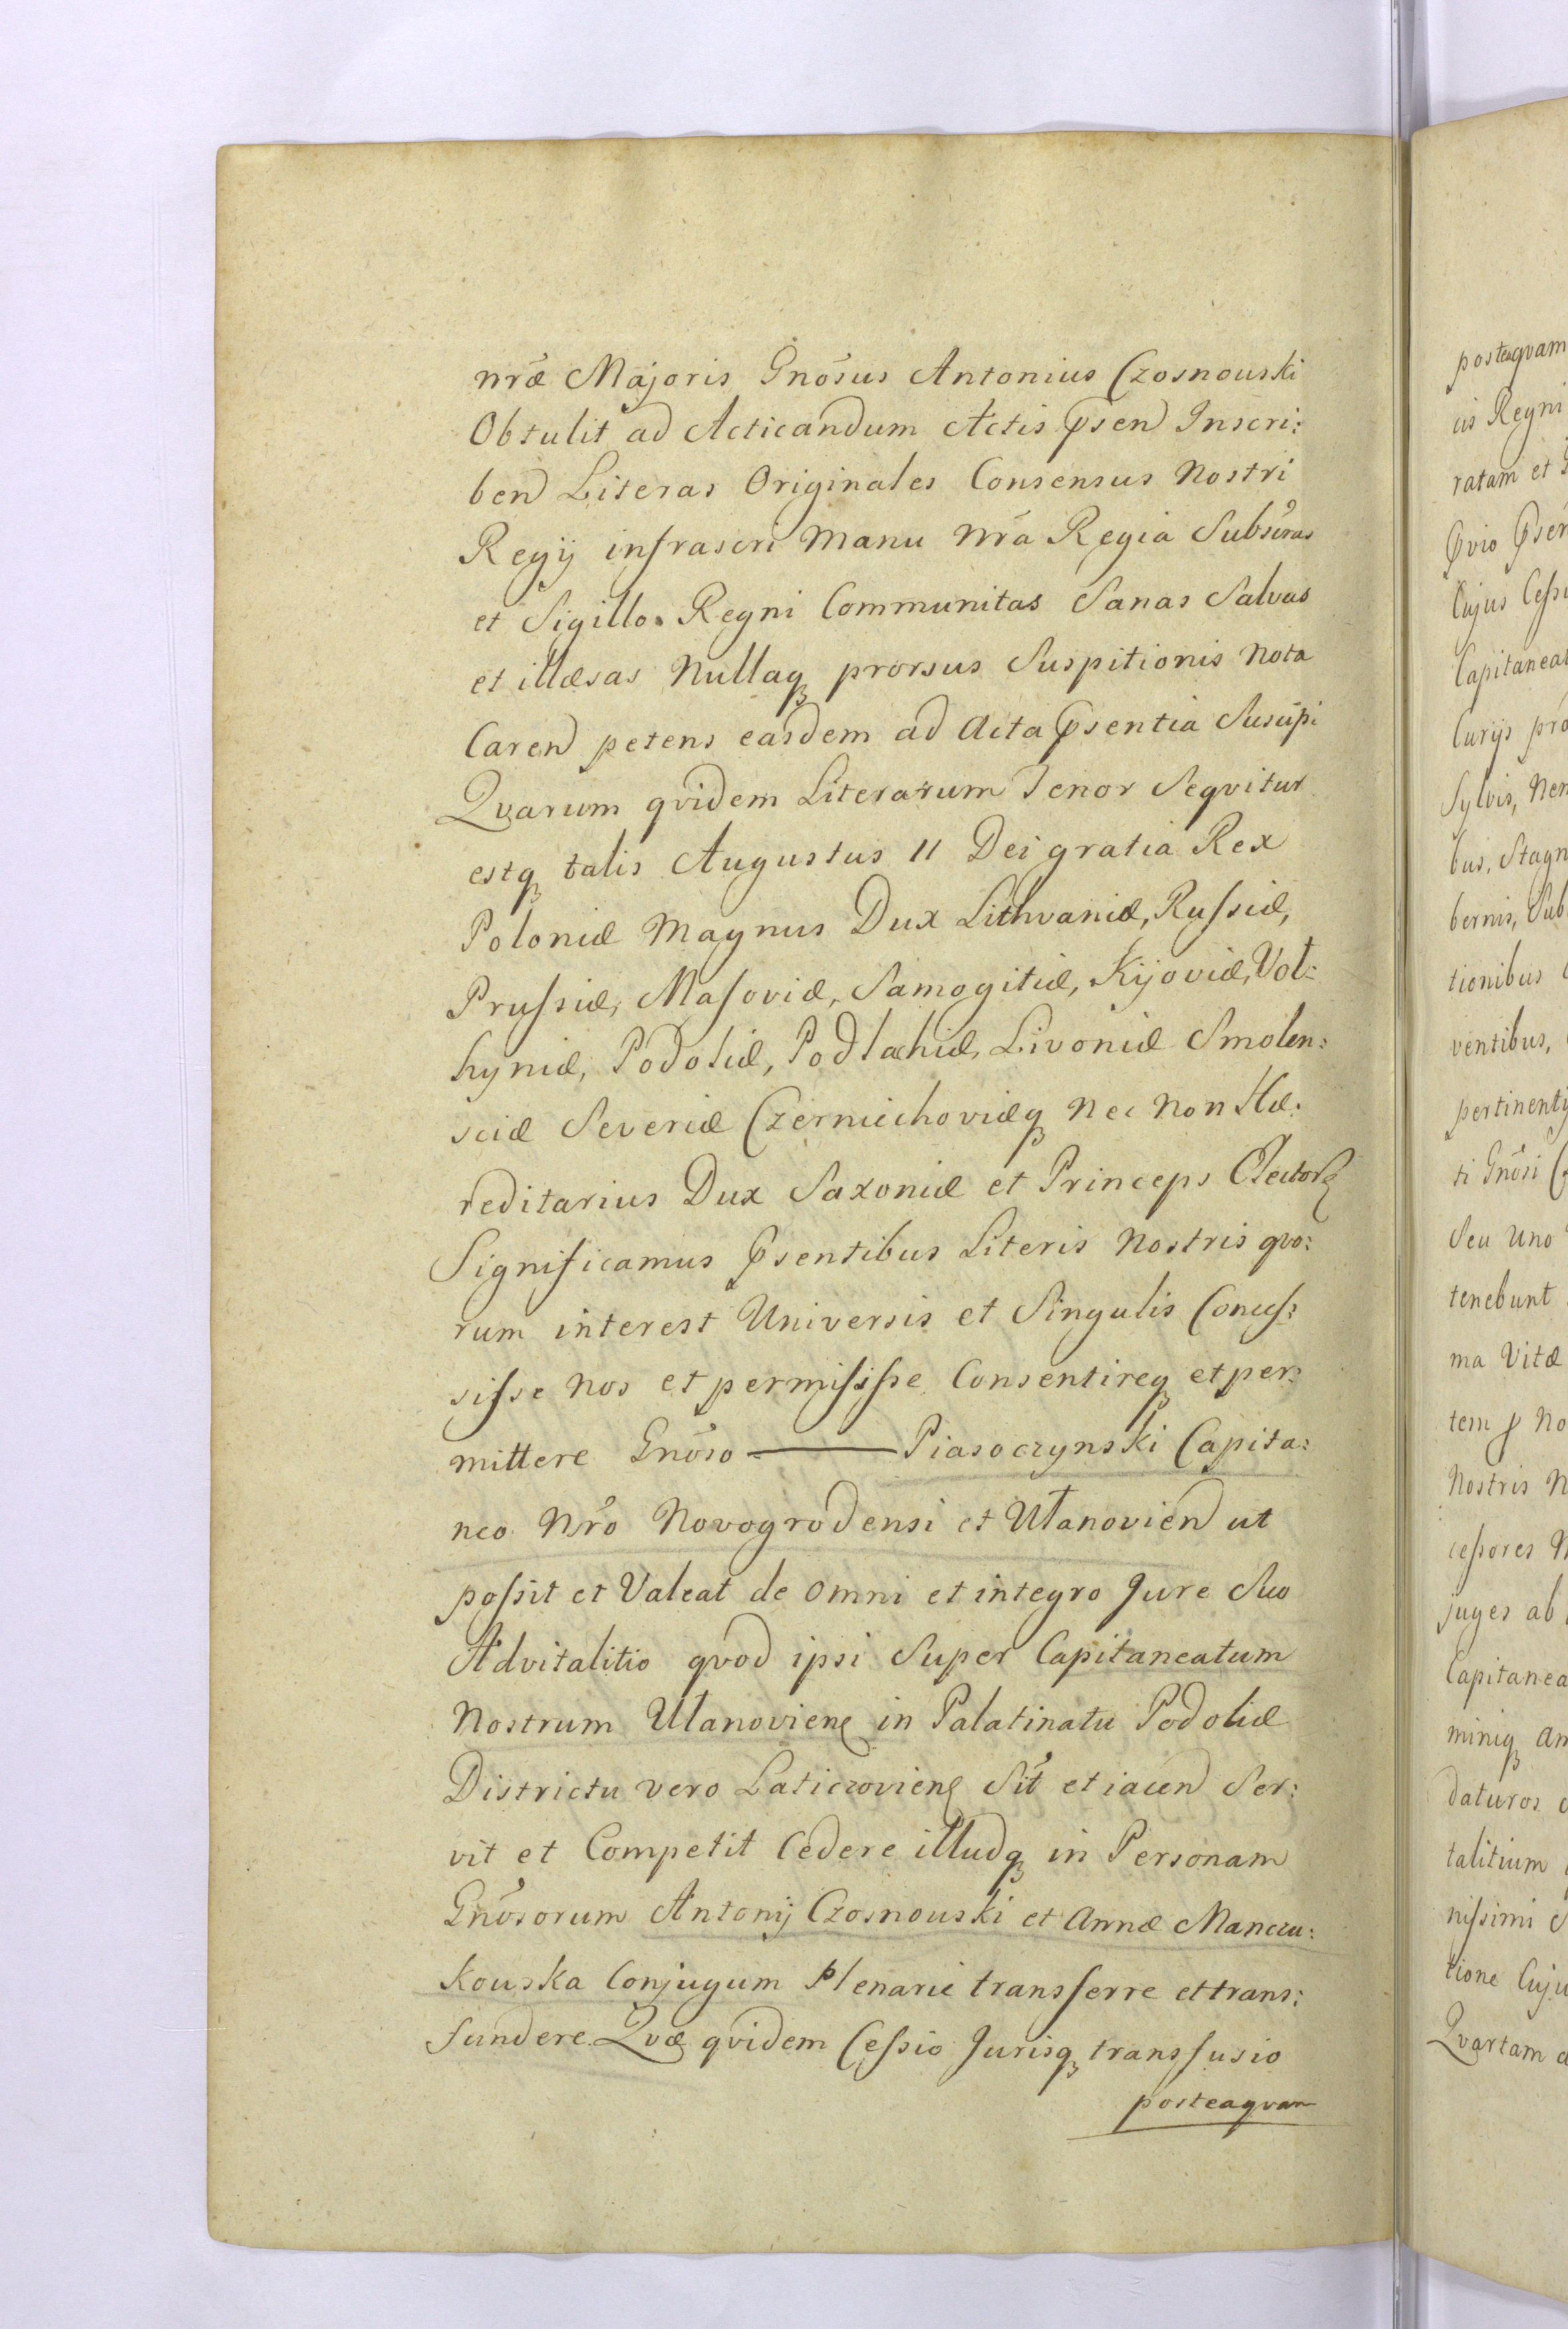 nrae Majoris Gnosus Antonius Czosnouski
Obtulit ad Acticandum Actis Psen Inscri:
ben Literas Originales Consensus Nostri
Regij infrascri Manu Nra Regia Subscras
et Sigillo Regni Communitas Sanas Salvas
et illæsas Nullaq prorsus Suspitionis Nota
Caren petens easdem ad Acta Psentia Suscipi
Qvarum qvidem Literarum Tenor Seqvitur
estq talis Augustus II Dei gratia Rex
Poloniæ Magnus Dux Lithvaniæ, Russiæ,
Prussiæ, Masoviæ, Samogitiæ, Kijoviæ, Vol:
hyniæ, Podoliæ, Podlachiæ, Livoniæ Smolen:
sciæ Severiæ Czerniechoviæq Nec Non Hæ:
reditarius Dux Saxoniæ et Princeps Elector
Significamus Psentibus Literis Nostris qvo:
rum interest Universis et Singulis Conces:
sisse Nos et permisisse Consentireq et per:
mittere Gnoso ——— Piasoczynski Capita:
neo Nro Novogrodensi et Ulanovien ut
possit et Valeat de omni et integro Jure Suo
Advitalitio qvod ipsi Super Capitaneatum
Nostrum Ulanovien in Palatinatu Podoliæ
Districtu vero Laticzovien Sit et iacen Ser:
vit et Competit Cedere illudq in Personam
Gnosorum Antonij Czosnouski et Annæ Manczu:
kouska Conjugum Plenarie transferre et trans:
fundere Qvæ qvidem Cessio Jurisq transfusio
posteaqvam
posteaqvam
cis Regni
ratam et
Cujus
Capitanea
Curijs
Sylvis,
bus, Stagn
bernis, Sub
tionibus
ventibus,
pertinenty
ti Gnosi
Seu Uno
tenebunt
ma Vitæ
tem
Nostris
cessores
juges ab
Capitanea
miniq
daturos
talitium
nissimi
tione Cuju
Qvartam